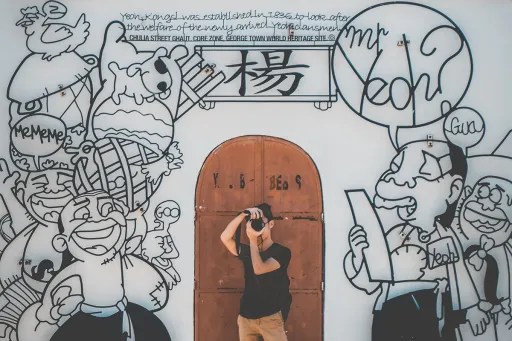 Yeoh Kongsi was established in 1836 to look after
the welfare of the newly arrived Yeoh clansmen
CHULIA STREET GHAUT, CORE ZONE, GEORGE TOWN WORLD HERITAGE SITE
楊
Mr
Yeoh?
Gua
Me Me Me
Yeoh